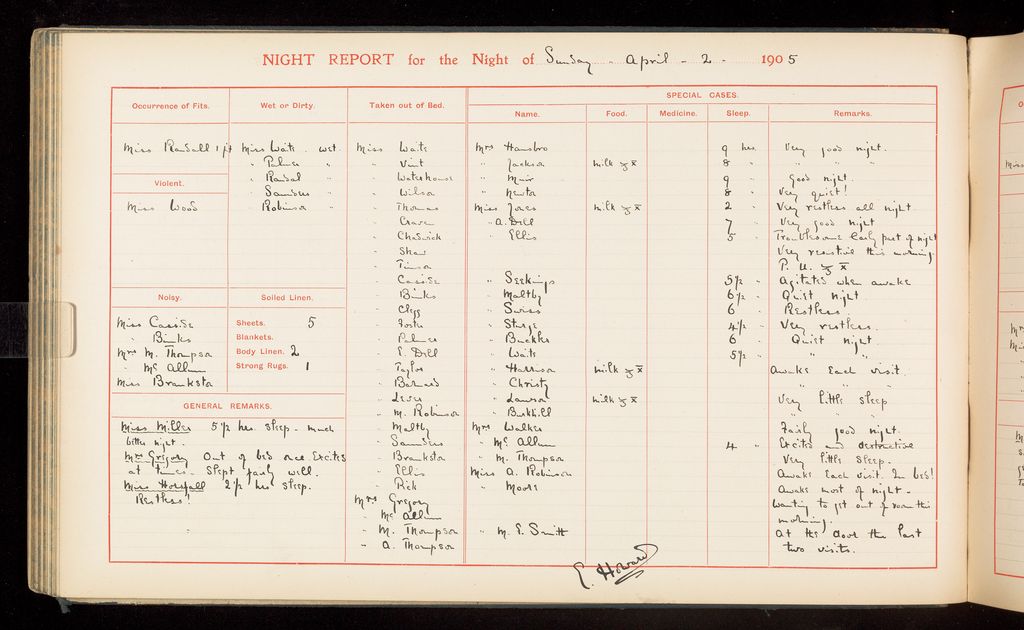 NIGHT REPORT for the Night of Sunday - April - 2 - 1905
Occurrence of Fits.
Miss Randall 1 fit
Violent.
Miss Wood
Noisy.
Miss Casside
" Binks
Mrs M. Thompson
" Mc Allum
Miss Brankston
Wet or Dirty.
Miss Waite . wet.
" Palmer "
" Randal "
" Saunders "
Robinson
Soiled Linen.
Sheets. 5
Blankets.
Body Linen. 2
Strong Rugs. 1
GENERAL REMARKS.
Miss Miller 5 1/2 hrs sleep - much
better night -
Mrs Gregory Out of bed once. Excited
at times. Slept fairly well.
Miss Horsfall 2 1/2 hrs sleep.
Restless!
Taken out of Bed.
Miss Waite
" Vint
" Waterhouse
" Wilson
" Thomas
" Craven
" Chadwick
" Shaw
"
" Casside
" Binks
" Clegg
" Foster
" Palmer
" E. Dell
" Taylor
" Barnard
" Lever
" M. Robinson
" Maltby
" Saunders
" Brankston
" Ellis
" Rick
Mrs Gregory
" Mc Allum
" M. Thompson
" A. Thompson
SPECIAL CASES.
Name. Food. Medicine. Sleep. Remarks.
Mrs Hansbro 9 hrs. Very good night.
" Jackson milk 8 " " " "
" Muir 9 " Good night.
" Newton 8 " Very quiet!
Miss Jones milk 2 " Very restless all night
" A. Dell 7 " Very good night
" Ellis 5 " Troublesome early part of night
Very resistive this morning.
P. U.
" Seekings 5 1/2 " Agitated when awake
" Maltby 6 1/2 " Quiet night
" Swiss 6 " Restless
" Sturge 4 1/2 " Very restless.
" Buckles 6 " Quiet night
" Waite 5 1/2 " " "
" Harrison milk Awake each visit.
" Christy " " "
" Lawson milk Very little sleep
" Birkhill " " "
Mrs Walker Fairly good night.
" Mc Allum 4 " Excited and destructive
" M. Thompson Very little sleep.
Miss A. Robinson Awake each visit. In bed!
" Moore Awake most of night -
Wanting to get out of room this
morning.
" M. E. Smith At the door the last
two visits.
E. Howard